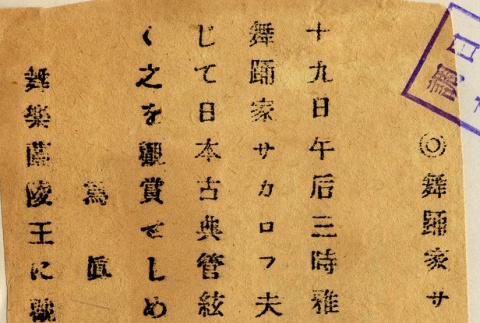 ◎舞踊家サ
十九日午后三時雅
舞踊家サカロフ夫
じて日本古典管絃
く之を觀賞せしめ
寫眞
舞樂蘭陵王に